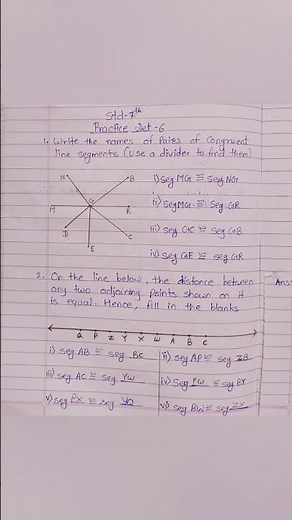 Std-7th
Practice Set-6
1. Write the names of Pairs of Congruent
line segments (use a divider to find them)
N B
G
M R
D C
E
i) seg MG ≅ seg NG
ii) seg MG ≅ seg GR
iii) seg GC ≅ seg GB
iv) seg GE ≅ seg GR
2. On the line below, the distance between
any two adjoining points shown on it
is equal. Hence, fill in the blanks
Ans-
Q P Z Y X W A B C
i) seg AB ≅ seg BC ii) seg AP ≅ seg ZB
iii) seg AC ≅ seg YW iv) seg PW ≅ seg BY
v) seg PX ≅ seg YQ vi) seg BW ≅ seg ZX